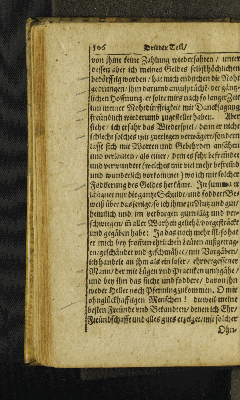 306 Dritter Teil/
von ihme keine Zahlung wiederfahren / unter
dessen aber ich meines Geldes selbst höchlichen
bedörfftig worden / hat mich endlichen die Noht
gedrungen / ihn darumb anzusprächen / der gäntz-
lichen Hoffnung / er solte mirs nach so langer Zeit
in meiner Nohtdürfftigkeit mit Dancksagung
freündlich wiederumb zugestellet haben. Aber
siehe / ich erfahr das Wiederspiel / da er mir nicht
schlecht solches mit
liesse sich mit Worten und Gebehrden an
und vernemen / als einer / den es sehr befremdet
und verwundere / welches mir viel mehr befremd
und wunderlich vorkommet) wo ich mit solcher
Forderung des Geldes herkäme. In summa er
laügnet mir die gantze Schulde / und fodder Be-
weiß über dasjenige / so ich ihme zu Nutz und gut /
heimlich und im verborgen gutwillig und ver-
schwiegen / in aller Warheit geliehen / vorgestreckt
und gegäben habe: Ja das noch mehr ist / so hat
er mich bey frommen ehrlichen Leüten außgetrag-
en / geschändet und geschmähet / mit Vorgäben /
ich handele an ihm als ein loser / ehrvergessener
Mann / der mit Lügen und Practiken umbgähe /
und bey ihm das suche und foddere / davon ihm
weder Heller noch Pfenning zukommen. O mir
ohnglückhafftigen Menschen! dieweil meine
besten Freünde und Bekandten / denen ich Ehr /
Freündschafft und alles guts erzeiget / mit solcher